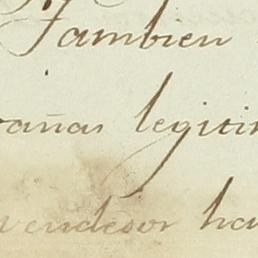 Tambien
rañas legitim
vendedor ha